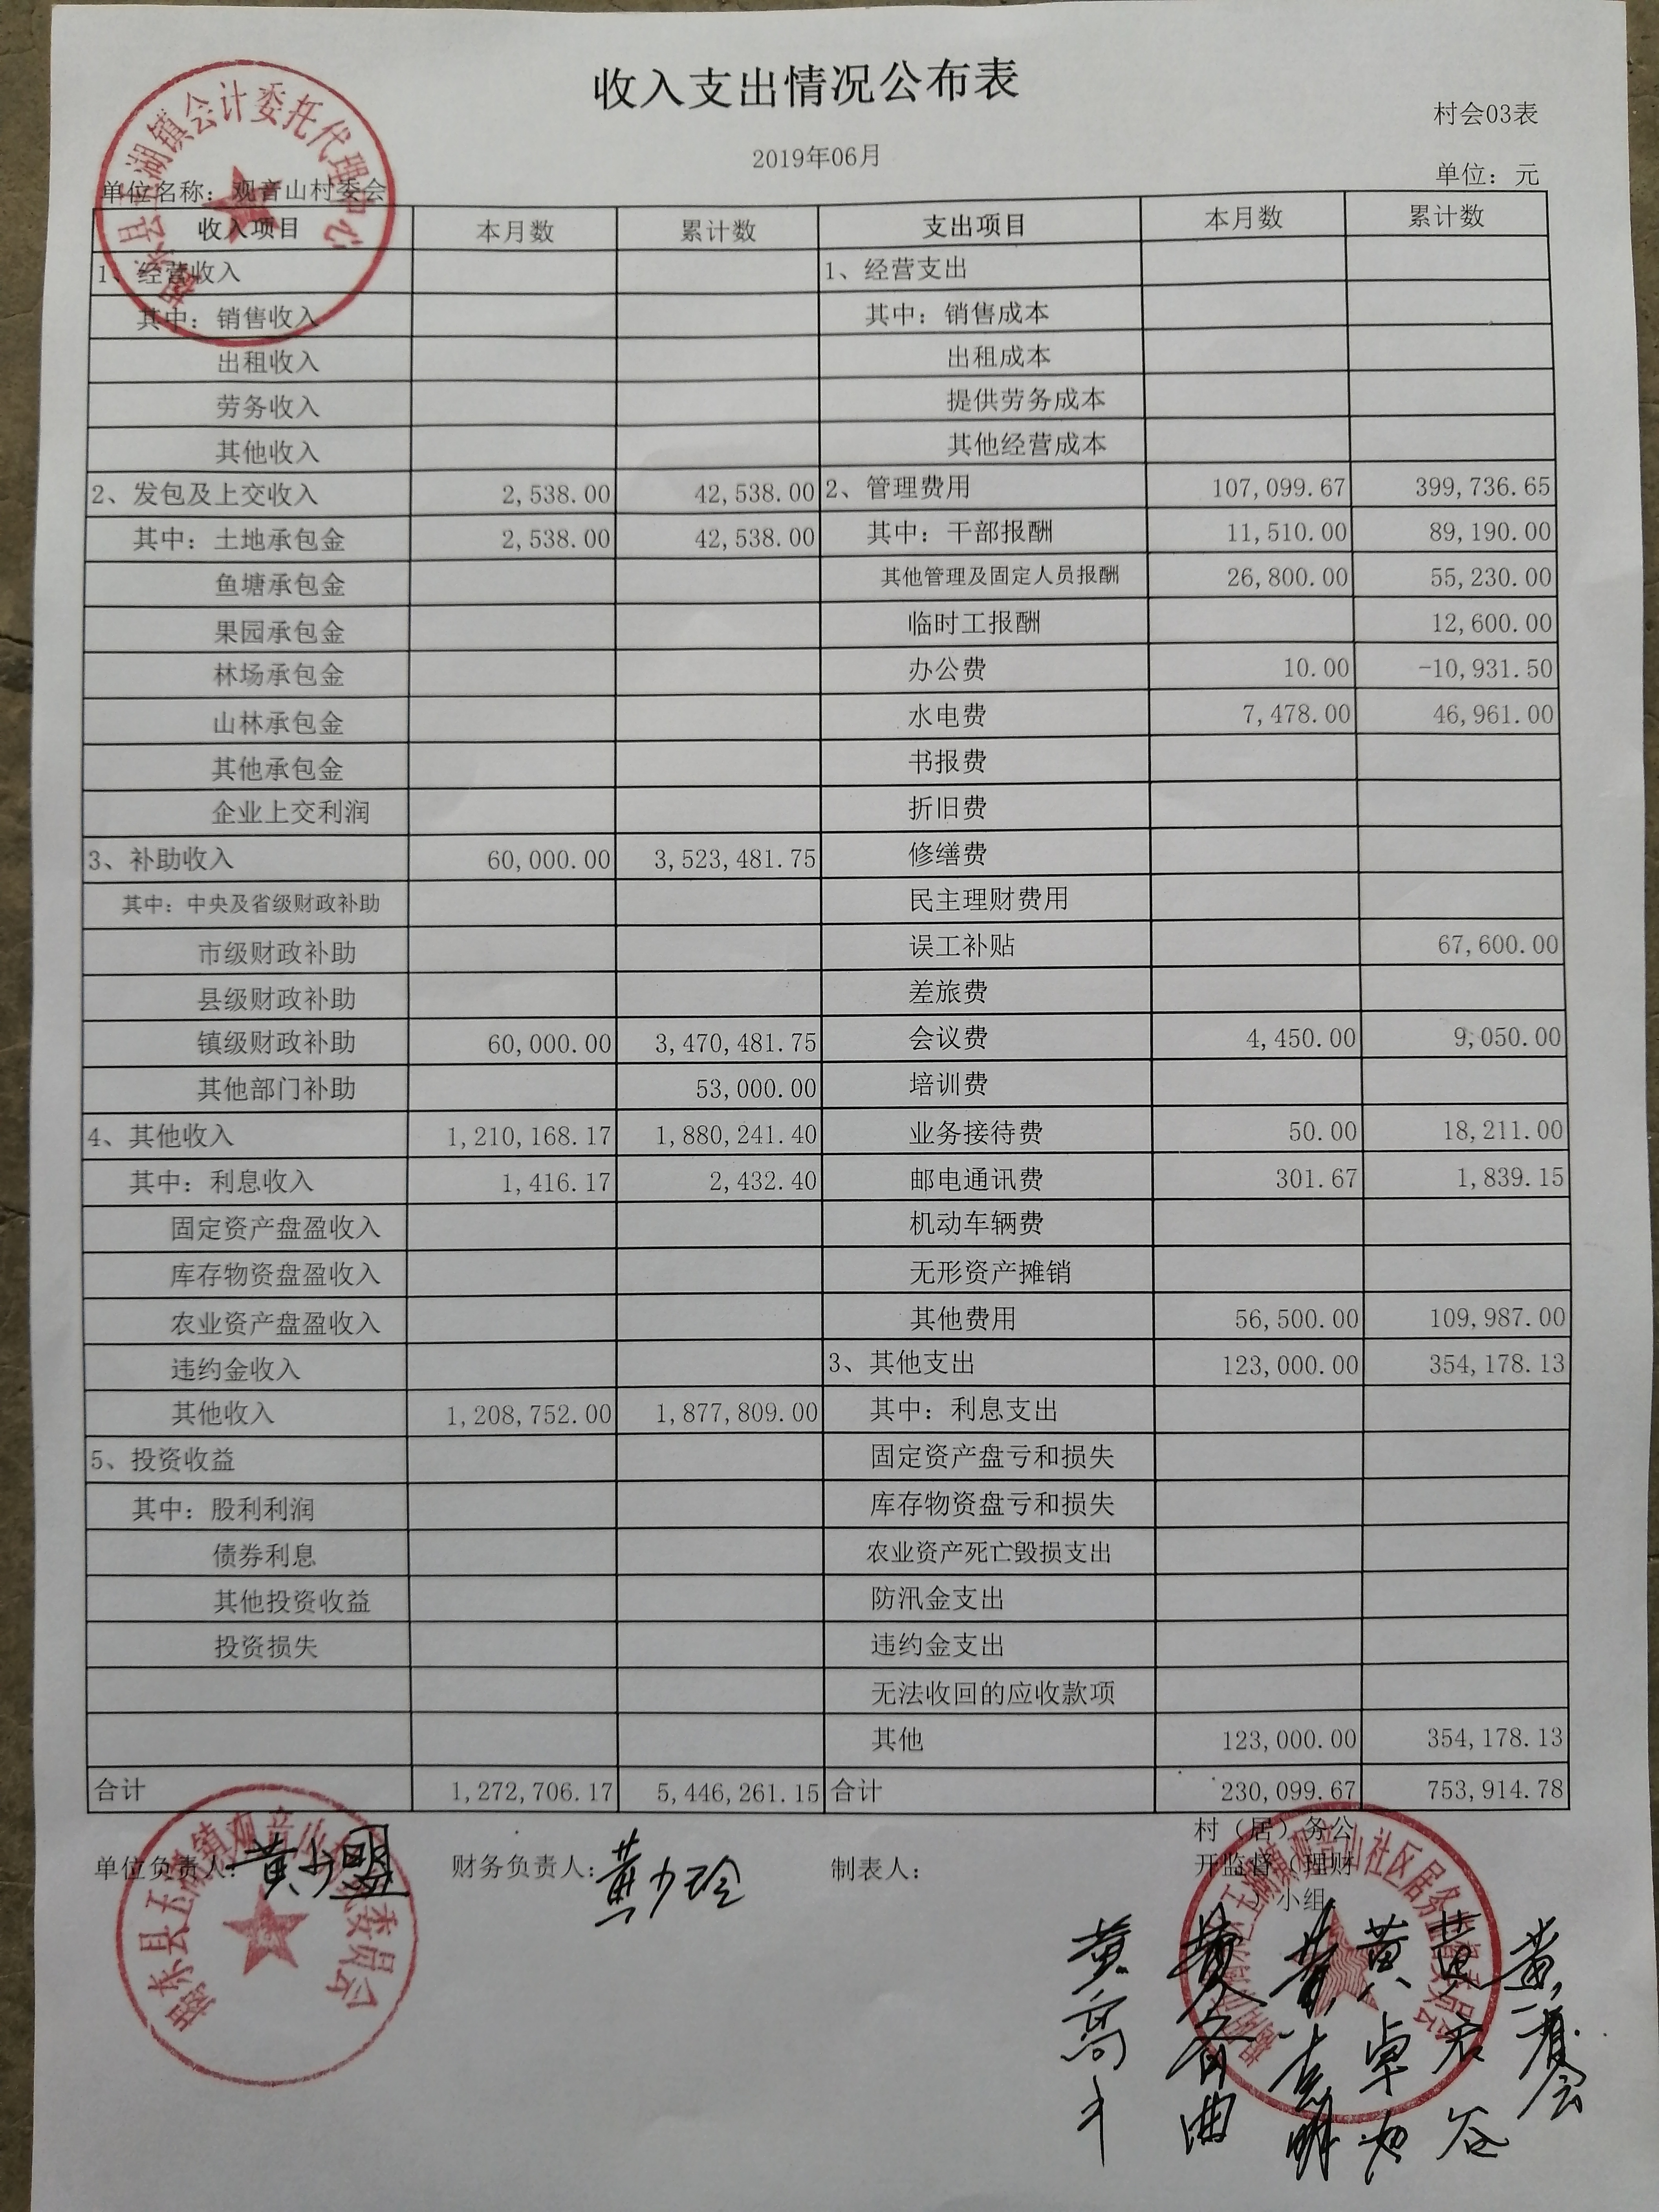 收入支出情况公布表
村会03表
2019年06月
单位名称：观音山村委会 单位：元
收入项目 本月数 累计数 支出项目 本月数 累计数
1、经营收入 1、经营支出
其中：销售收入 其中：销售成本
出租收入 出租成本
劳务收入 提供劳务成本
其他收入 其他经营成本
2、发包及上交收入 2,538.00 42,538.00 2、管理费用 107,099.67 399,736.65
其中：土地承包金 2,538.00 42,538.00 其中：干部报酬 11,510.00 89,190.00
鱼塘承包金 其他管理及固定人员报酬 26,800.00 55,230.00
果园承包金 临时工报酬 12,600.00
林场承包金 办公费 10.00 -10,931.50
山林承包金 水电费 7,478.00 46,961.00
其他承包金 书报费
企业上交利润 折旧费
3、补助收入 60,000.00 3,523,481.75 修缮费
其中：中央及省级财政补助 民主理财费用
市级财政补助 误工补贴 67,600.00
县级财政补助 差旅费
镇级财政补助 60,000.00 3,470,481.75 会议费 4,450.00 9,050.00
其他部门补助 53,000.00 培训费
4、其他收入 1,210,168.17 1,880,241.40 业务接待费 50.00 18,211.00
其中：利息收入 1,416.17 2,432.40 邮电通讯费 301.67 1,839.15
固定资产盘盈收入 机动车辆费
库存物资盘盈收入 无形资产摊销
农业资产盘盈收入 其他费用 56,500.00 109,987.00
违约金收入 3、其他支出 123,000.00 354,178.13
其他收入 1,208,752.00 1,877,809.00 其中：利息支出
5、投资收益 固定资产盘亏和损失
其中：股利利润 库存物资盘亏和损失
债券利息 农业资产死亡毁损支出
其他投资收益 防汛金支出
投资损失 违约金支出
无法收回的应收款项
其他 123,000.00 354,178.13
合计 1,272,706.17 5,446,261.15 合计 230,099.67 753,914.78
单位负责人：黄少盟 财务负责人：黄少玲 制表人： 村（居）务公
开监督（理财
）小组
揭东县玉湖镇会计委托代理中心
揭东县玉湖镇观音山村民委员会
玉湖镇观音山社区居务监督委员会